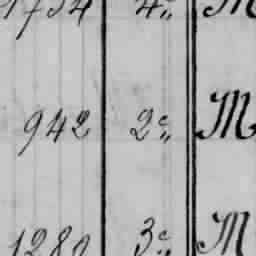 1734 4e„ M
942 2e„ M
1280 3e„ M